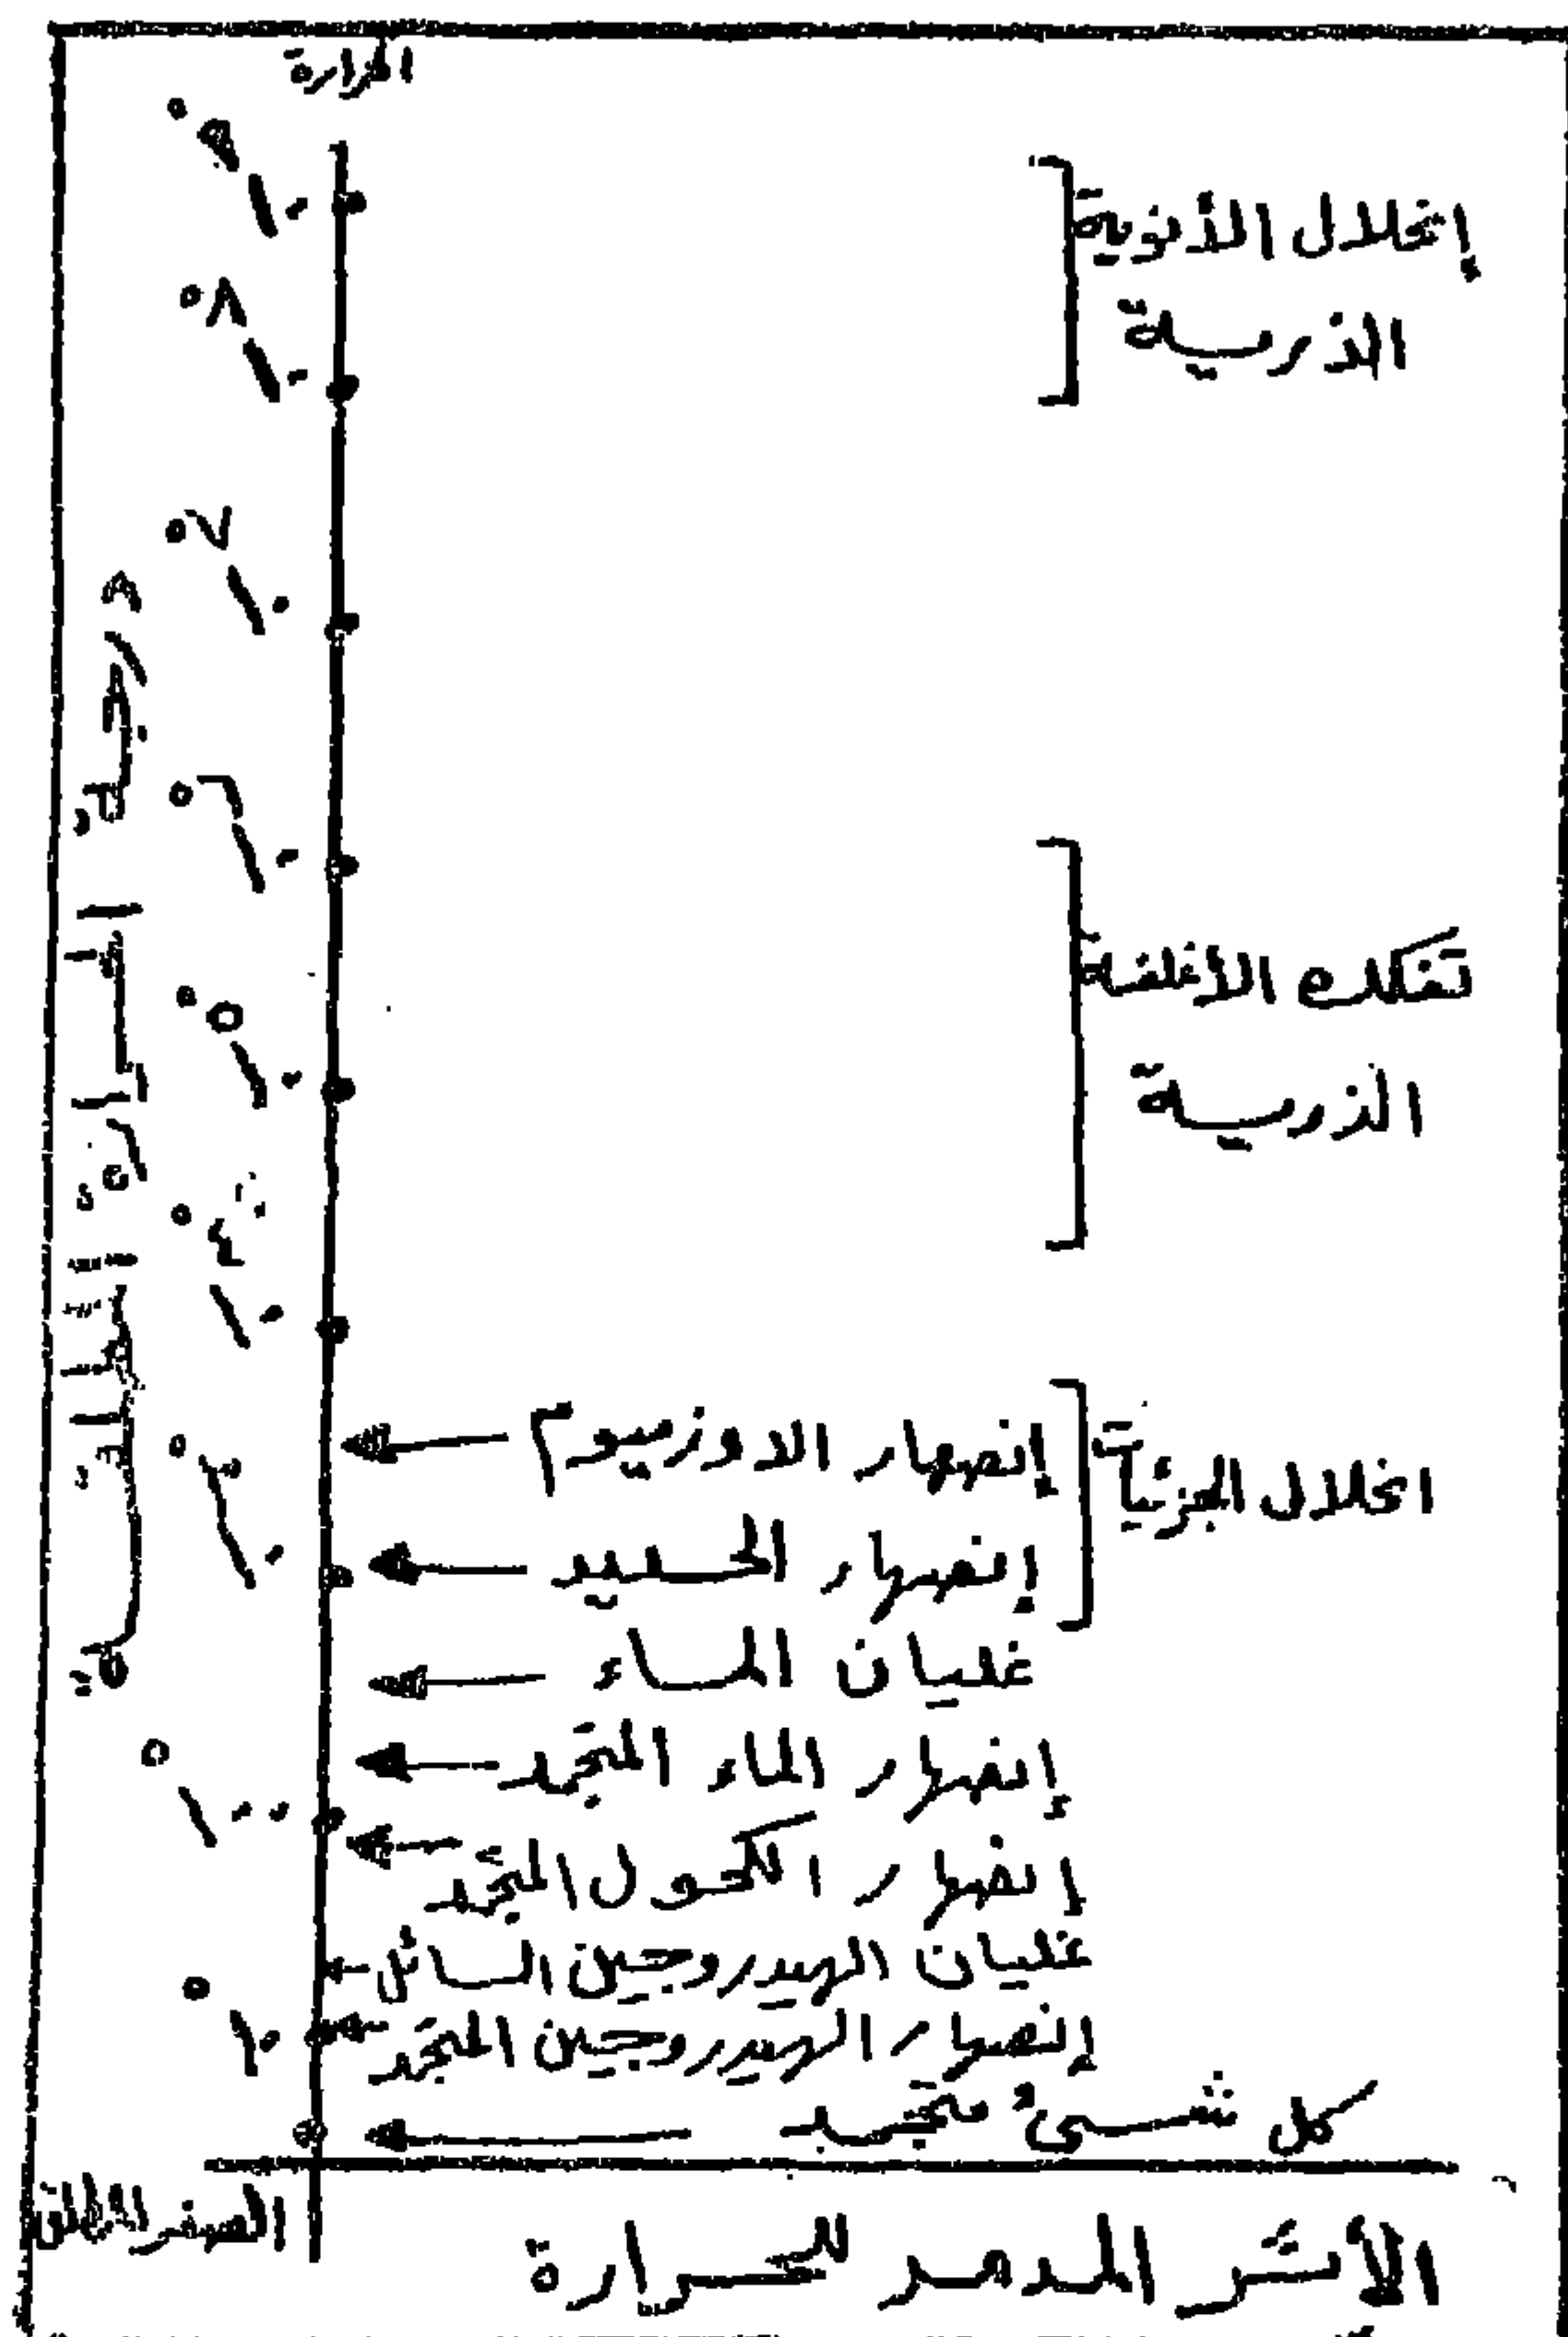 الحرارة
١٠^٩°
١٠^٨°
١٠^٧°
١٠^٦°
١٠^٥°
١٠^٤°
١٠^٣°
١٠٠°
١٠°
درجة الحرارة المطلقة
إنحلال الأنوية
الذرية
تفكك الأغلفة
الذرية
انحلال الجزئيات
إنصهار الاوزميوم
إنصهار الحديد
غليان الماء
إنصهار الماء المتجمد
إنصهار الكحول المتجمد
غليان الهيدروجين السائل
إنصهار الهيدروجين المتجمد
كل شىء متجمد
الصفر المطلق
الأثر المدمر للحرارة